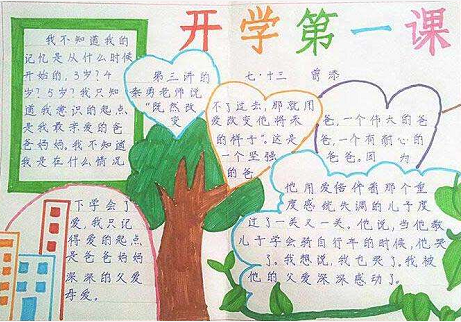 开学第一课
我不知道我的
记忆是从什么时候
开始的，3岁？4
岁？5岁？我只知
道我意识的起点
是我最亲爱的爸
爸妈妈，我不知道
我是在什么情况
下学会了
爱，我只记
得爱的起点
是爸爸妈妈
深深的父爱
母爱。
第三讲的
老师说
“既然改
变
七·十三
不了过去，那就用
爱改变他将来
的样子”。这是
一个坚强
的爸
爸，一个伟大的爸
爸，一个有耐心的
爸爸。因为
他用爱陪伴着那个重
度感统失调的儿子度
过了一关又一关。他说，当他教
儿子学会骑自行车的时候，他哭
了。我想说，我也哭了。我被
他的父爱深深感动了。